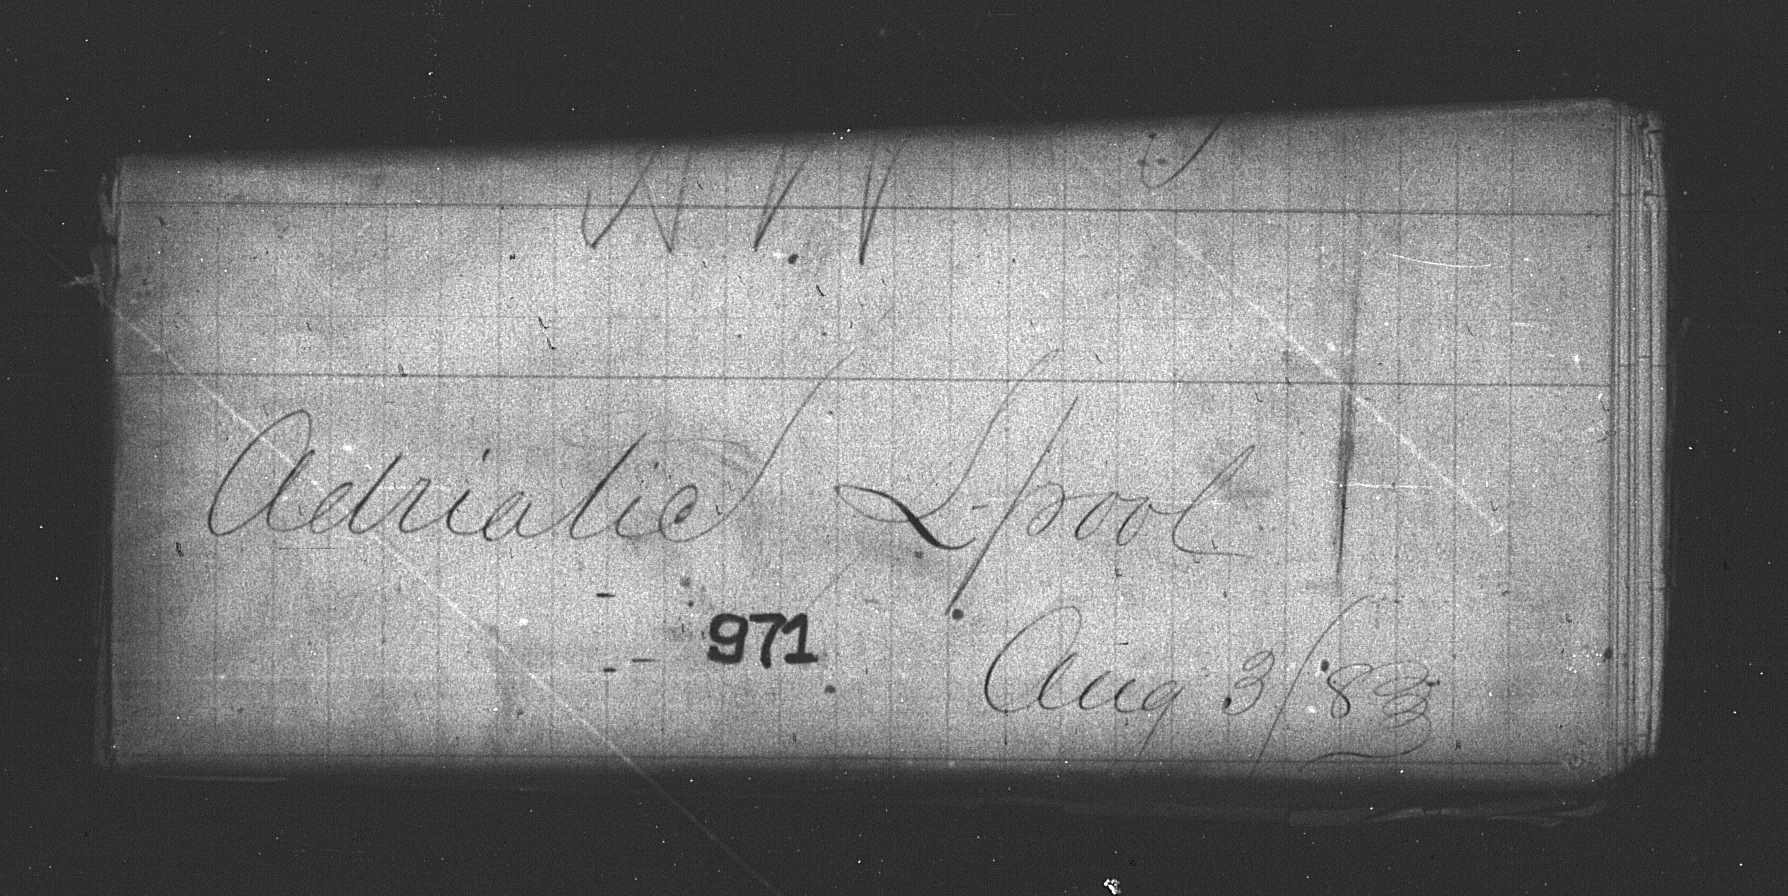 Adriatic L-pool
971
Aug 3/83